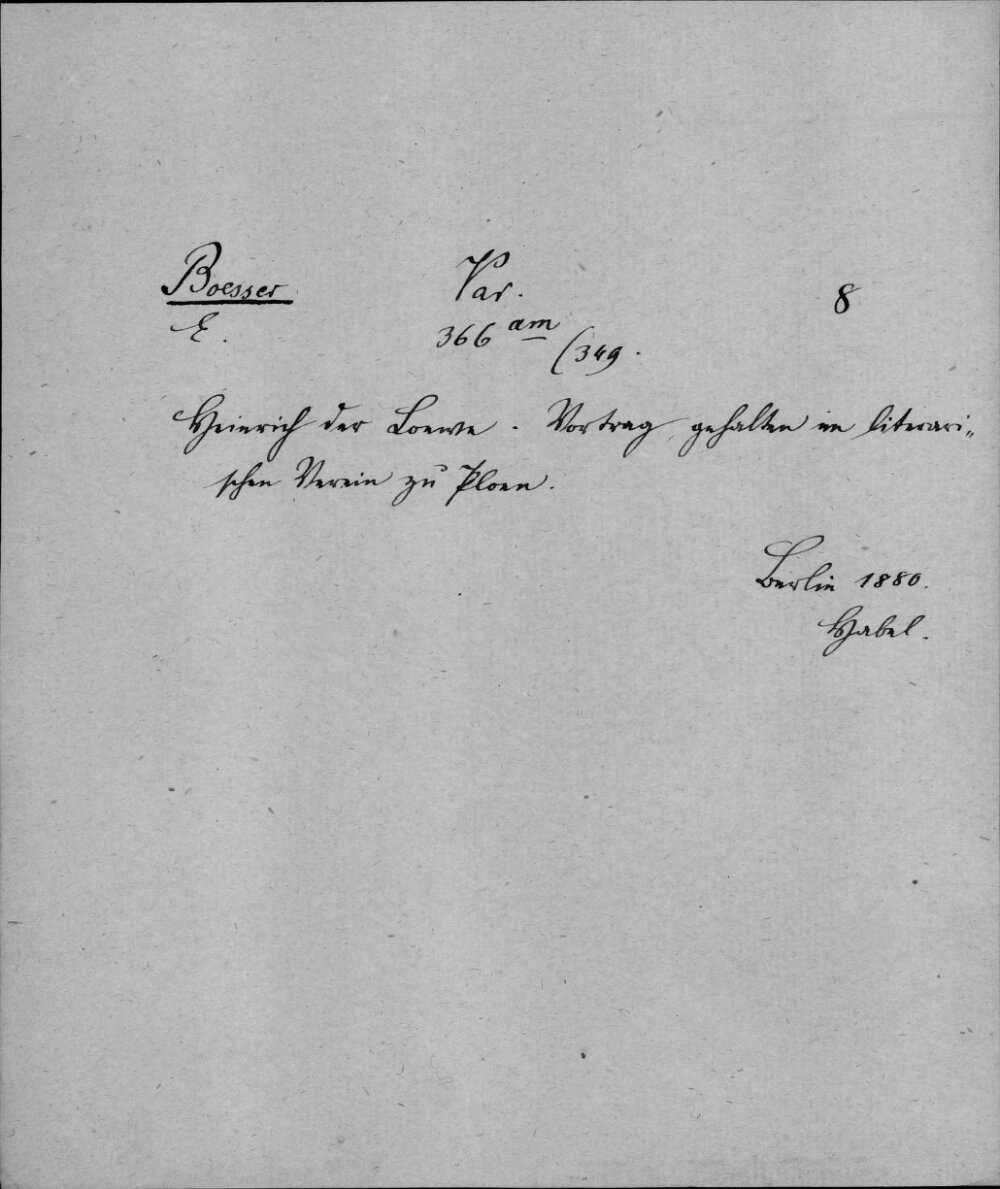 Boesser Var. 8
E. 366 am (349.
Heinrich der Loewe. Vortrag gehalten im literari-
schen Verein zu Ploen.
Berlin 1880.
Habel.